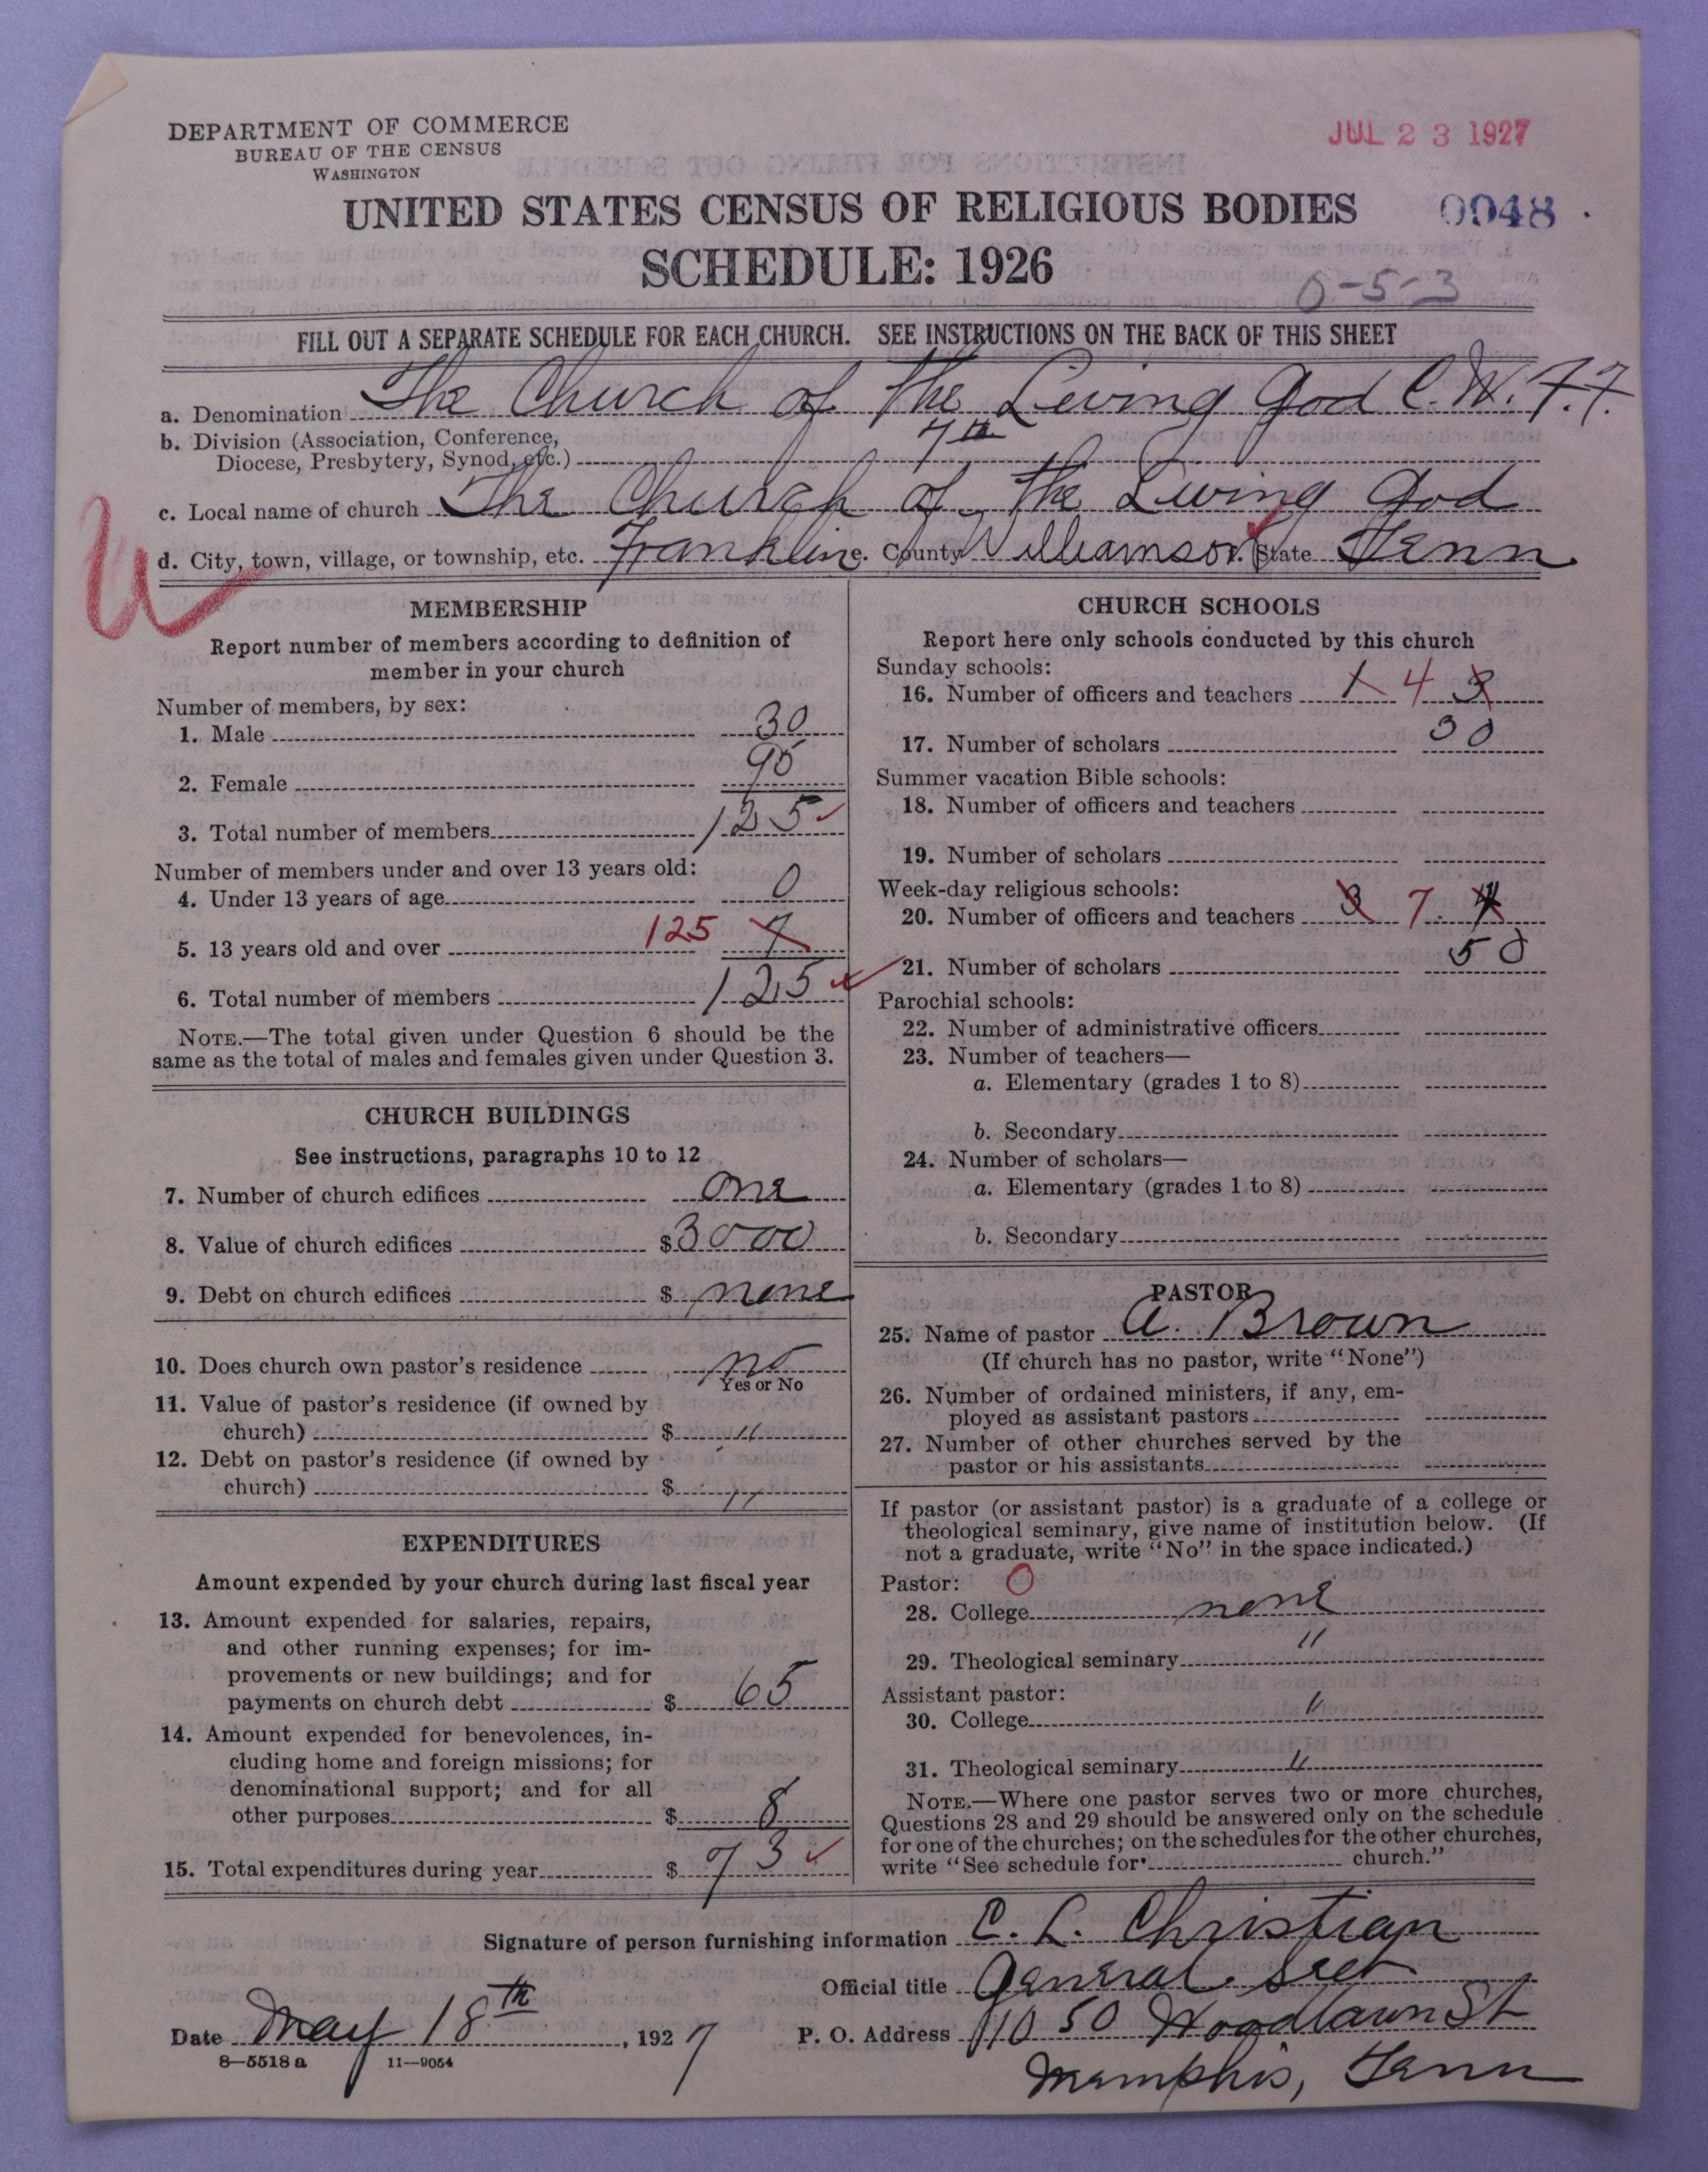 DEPARTMENT OF COMMERCE
BUREAU OF THE CENSUS
WASHINGTON
JUL 23 1927
UNITED STATES CENSUS OF RELIGIOUS BODIES
0048
SCHEDULE: 1926
0-5-3
FILL OUT A SEPARATE SCHEDULE FOR EACH CHURCH. SEE INSTRUCTIONS ON THE BACK OF THIS SHEET
a. Denomination The Church of the Living God C.W.F.F.
b. Division (Association, Conference,
Diocese, Presbytery, Synod, etc.) 7th
c. Local name of church The Church of the Living God
d. City, town, village, or township, etc. Franklin e. County Williamson f. State Tenn
MEMBERSHIP
Report number of members according to definition of
member in your church
Number of members, by sex:
1. Male 30
2. Female 95
3. Total number of members 125
Number of members under and over 13 years old:
4. Under 13 years of age 0
5. 13 years old and over 125 7
6. Total number of members 125
NOTE.—The total given under Question 6 should be the
same as the total of males and females given under Question 3.
CHURCH BUILDINGS
See instructions, paragraphs 10 to 12
7. Number of church edifices one
8. Value of church edifices $3000
9. Debt on church edifices $ none
10. Does church own pastor's residence no
Yes or No
11. Value of pastor's residence (if owned by
church) $ "
12. Debt on pastor's residence (if owned by
church) $ "
EXPENDITURES
Amount expended by your church during last fiscal year
13. Amount expended for salaries, repairs,
and other running expenses; for im-
provements or new buildings; and for
payments on church debt $ 65
14. Amount expended for benevolences, in-
cluding home and foreign missions; for
denominational support; and for all
other purposes $ 8
15. Total expenditures during year $ 73
CHURCH SCHOOLS
Report here only schools conducted by this church
Sunday schools:
16. Number of officers and teachers 1 4 3
17. Number of scholars 30
Summer vacation Bible schools:
18. Number of officers and teachers
19. Number of scholars
Week-day religious schools:
20. Number of officers and teachers 3 7 4
21. Number of scholars 50
Parochial schools:
22. Number of administrative officers
23. Number of teachers—
a. Elementary (grades 1 to 8)
b. Secondary
24. Number of scholars—
a. Elementary (grades 1 to 8)
b. Secondary
PASTOR
25. Name of pastor A. Brown
(If church has no pastor, write "None")
26. Number of ordained ministers, if any, em-
ployed as assistant pastors
27. Number of other churches served by the
pastor or his assistants
If pastor (or assistant pastor) is a graduate of a college or
theological seminary, give name of institution below. (If
not a graduate, write "No" in the space indicated.)
Pastor: O
28. College none
29. Theological seminary "
Assistant pastor:
30. College "
31. Theological seminary "
NOTE.—Where one pastor serves two or more churches,
Questions 28 and 29 should be answered only on the schedule
for one of the churches; on the schedules for the other churches,
write "See schedule for church."
Signature of person furnishing information C. L. Christian
Official title General Sect
Date May 18th, 1927
P. O. Address 1050 Woodlawn St
8—5518 a 11—9054
Memphis, Tenn